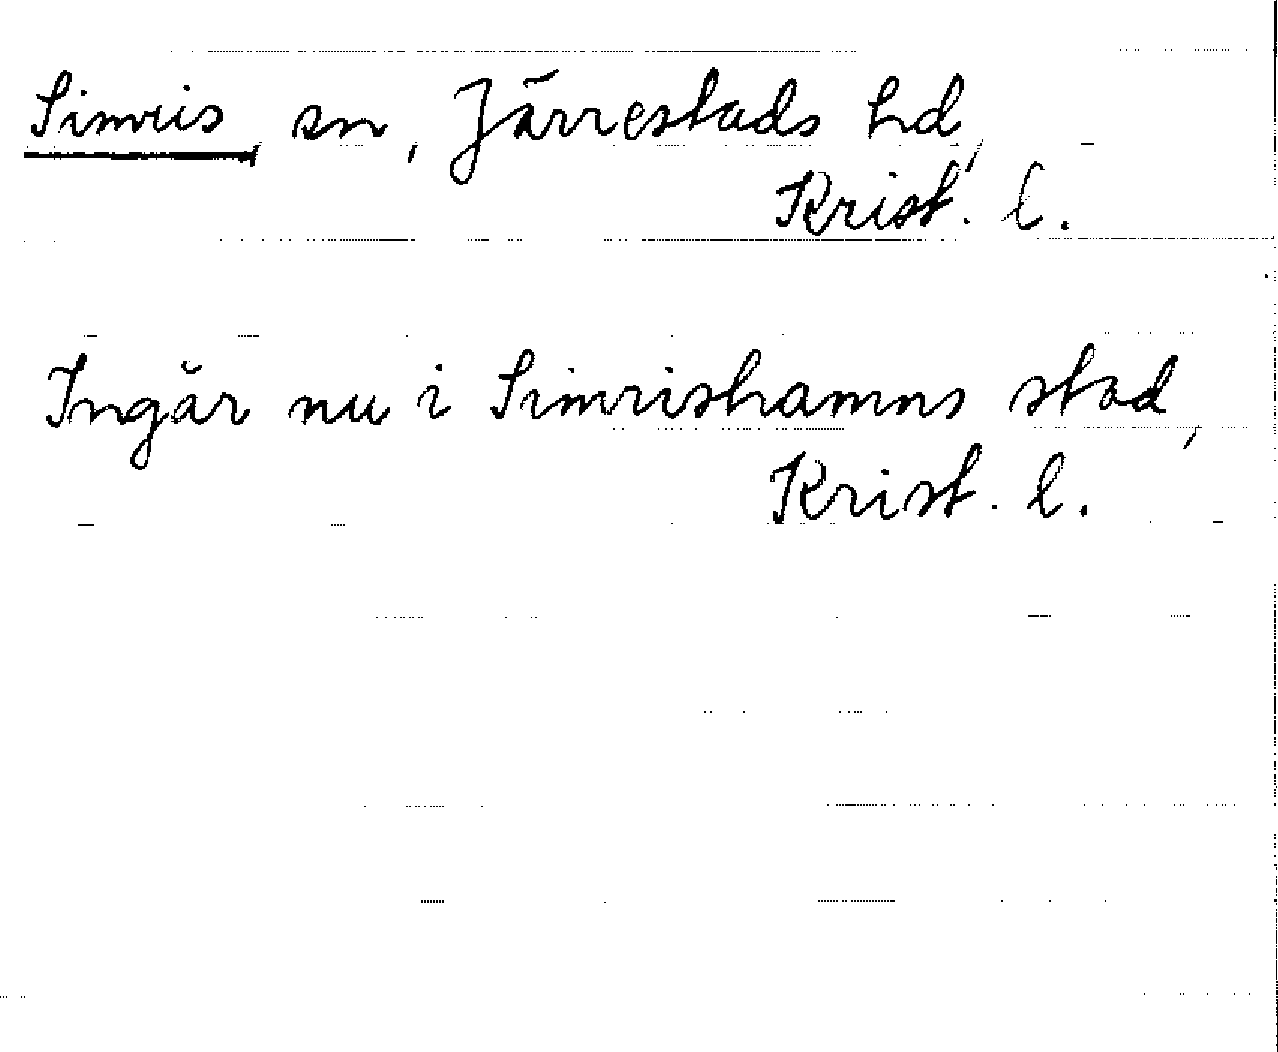 Simris sn, Järrestads hd,
Krist. l.
Ingår nu i Simrishamns stad,
Krist. l.